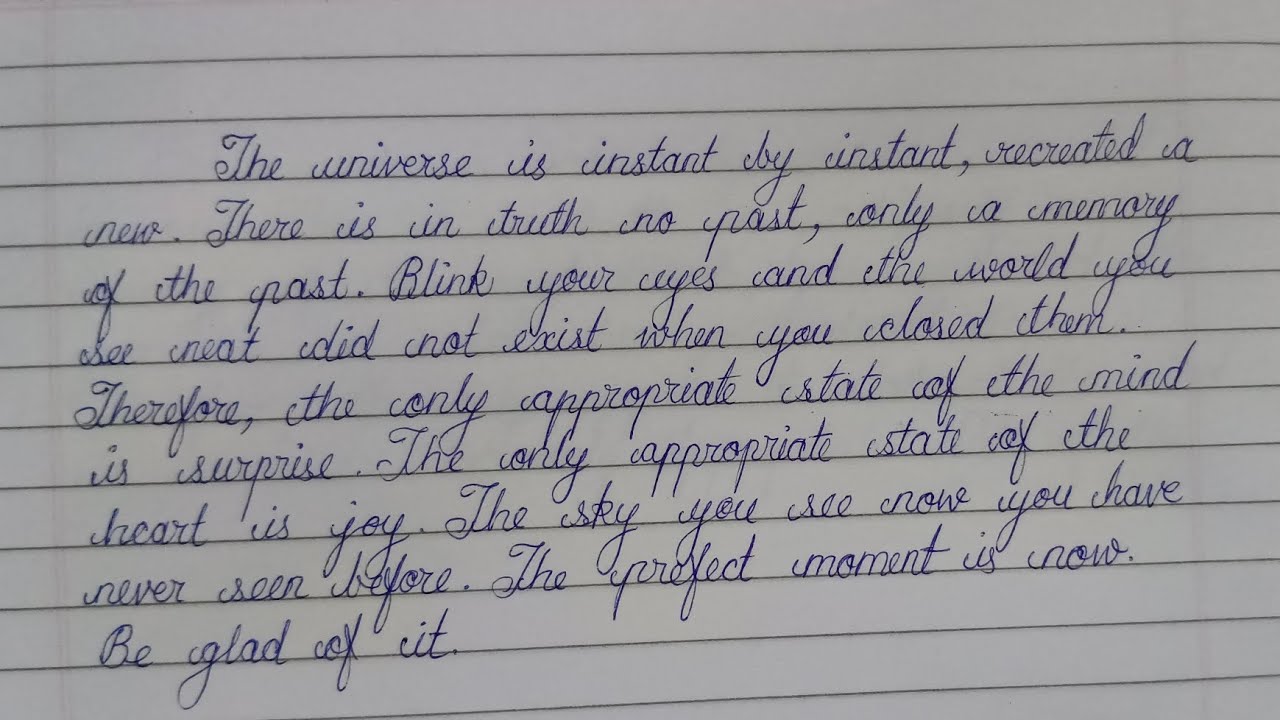 The universe is instant by instant, recreated a
new. There is in truth no past, only a memory
of the past. Blink your eyes and the world you
see neat did not exist when you closed them.
Therefore, the only appropriate state of the mind
is surprise. The only appropriate state of the
heart is joy. The sky you see now you have
never seen before. The prefect moment is now.
Be glad of it.